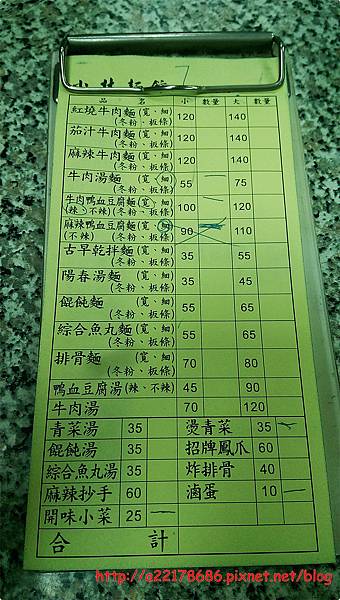 7
品 名 小 數量 大 數量
紅燒牛肉麵(寬、細) 120 140
(冬粉、板條)
茄汁牛肉麵(寬、細) 120 140
(冬粉、板條)
麻辣牛肉麵(寬、細) 120 140
(冬粉、板條)
牛肉湯麵(寬、細) 55 75
(冬粉、板條)
牛肉鴨血豆腐麵(寬、細) 100 120
(辣、不辣)(冬粉、板條)
麻辣鴨血豆腐麵(寬、細) 90 110
(不辣)(冬粉、板條)
古早乾拌麵(寬、細) 35 55
(冬粉、板條)
陽春湯麵(寬、細) 35 45
(冬粉、板條)
餛飩麵(寬、細) 55 65
(冬粉、板條)
綜合魚丸麵(寬、細) 55 65
(冬粉、板條)
排骨麵(寬、細) 70 80
(冬粉、板條)
鴨血豆腐湯(辣、不辣) 45 90
牛肉湯 70 120
青菜湯 35 燙青菜 35
餛飩湯 35 招牌鳳爪 60
綜合魚丸湯 35 炸排骨 40
麻辣抄手 60 滷蛋 10
開味小菜 25
合計
http://a22178686.pixnet.net/blog